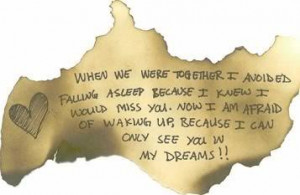 WHEN WE WERE TOGETHER I AVOIDED
FALLING ASLEEP BECAUSE I KNEW I
WOULD MISS YOU. NOW I AM AFRAID
OF WAKING UP, BECAUSE I CAN
ONLY SEE YOU IN
MY DREAMS!!